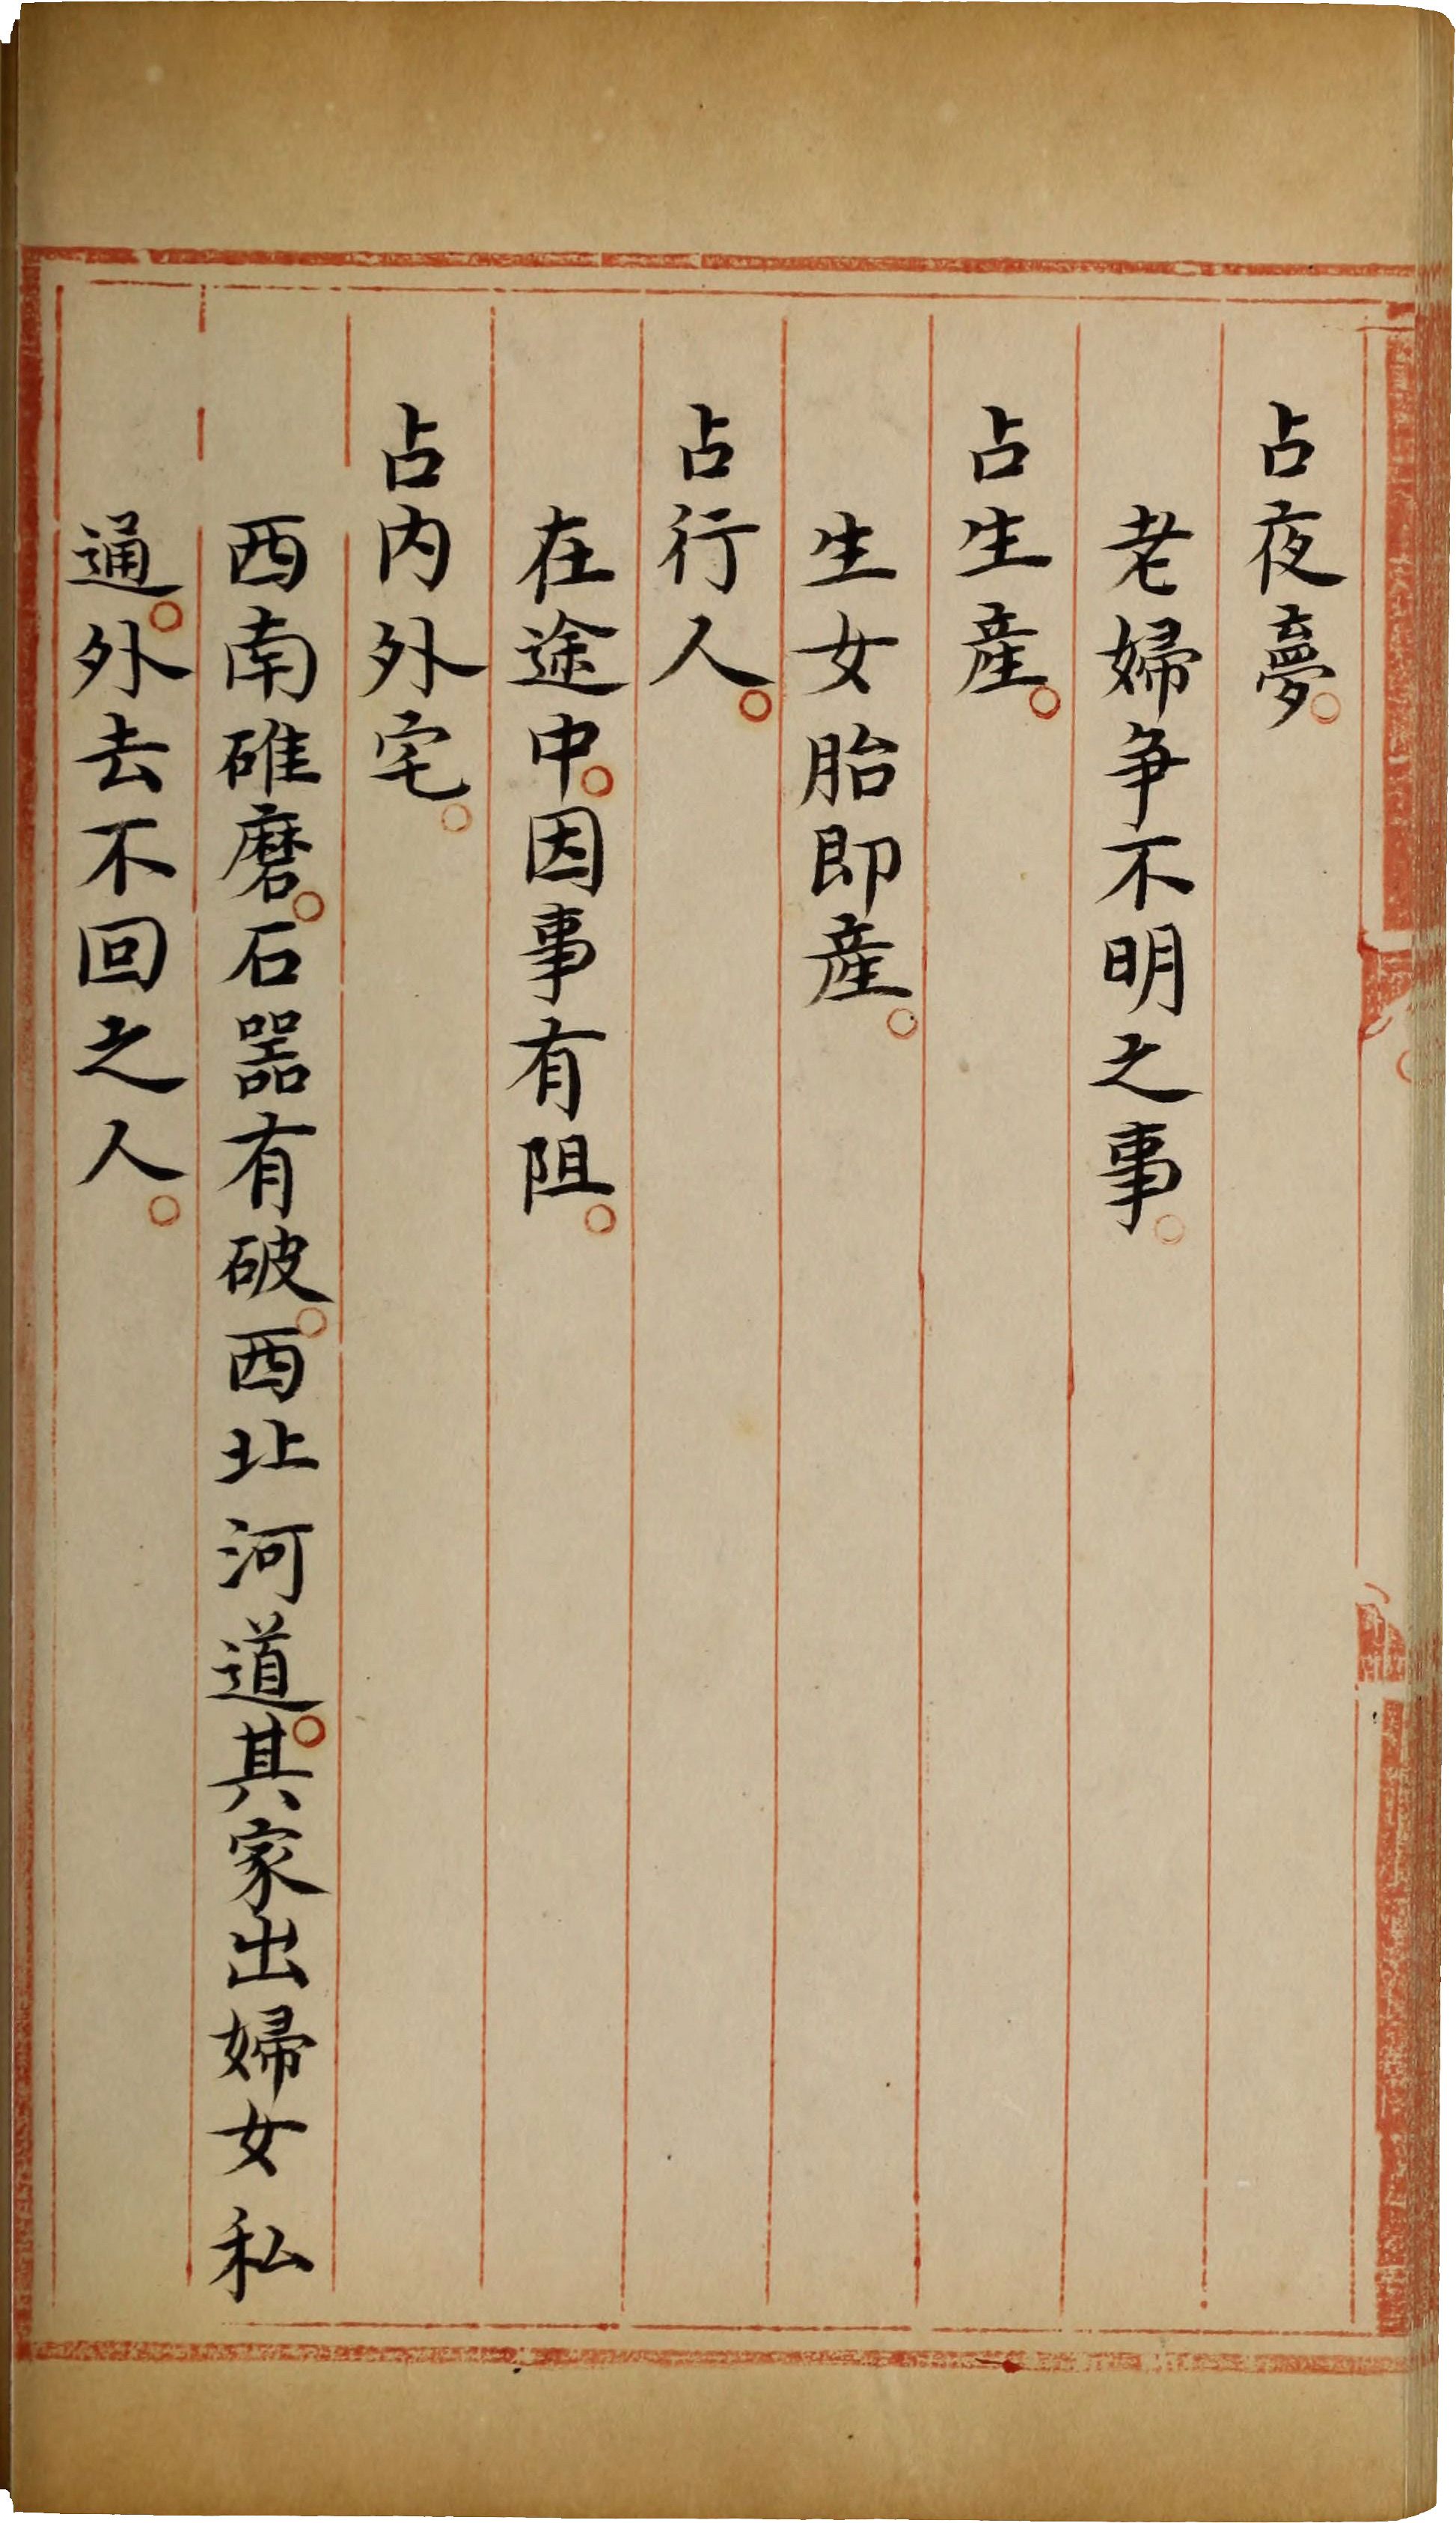 占夜夢。
老婦争不明之事。
占生産。
生女胎即産。
占行人。
在途中。因事有阻。
占内外宅。
西南碓磨。石器有破。西北河道。其家出婦女私
通。外去不回之人。